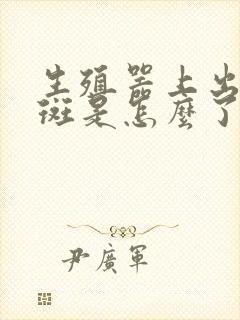 生殖器上出
斑是怎麼了
尹廣軍